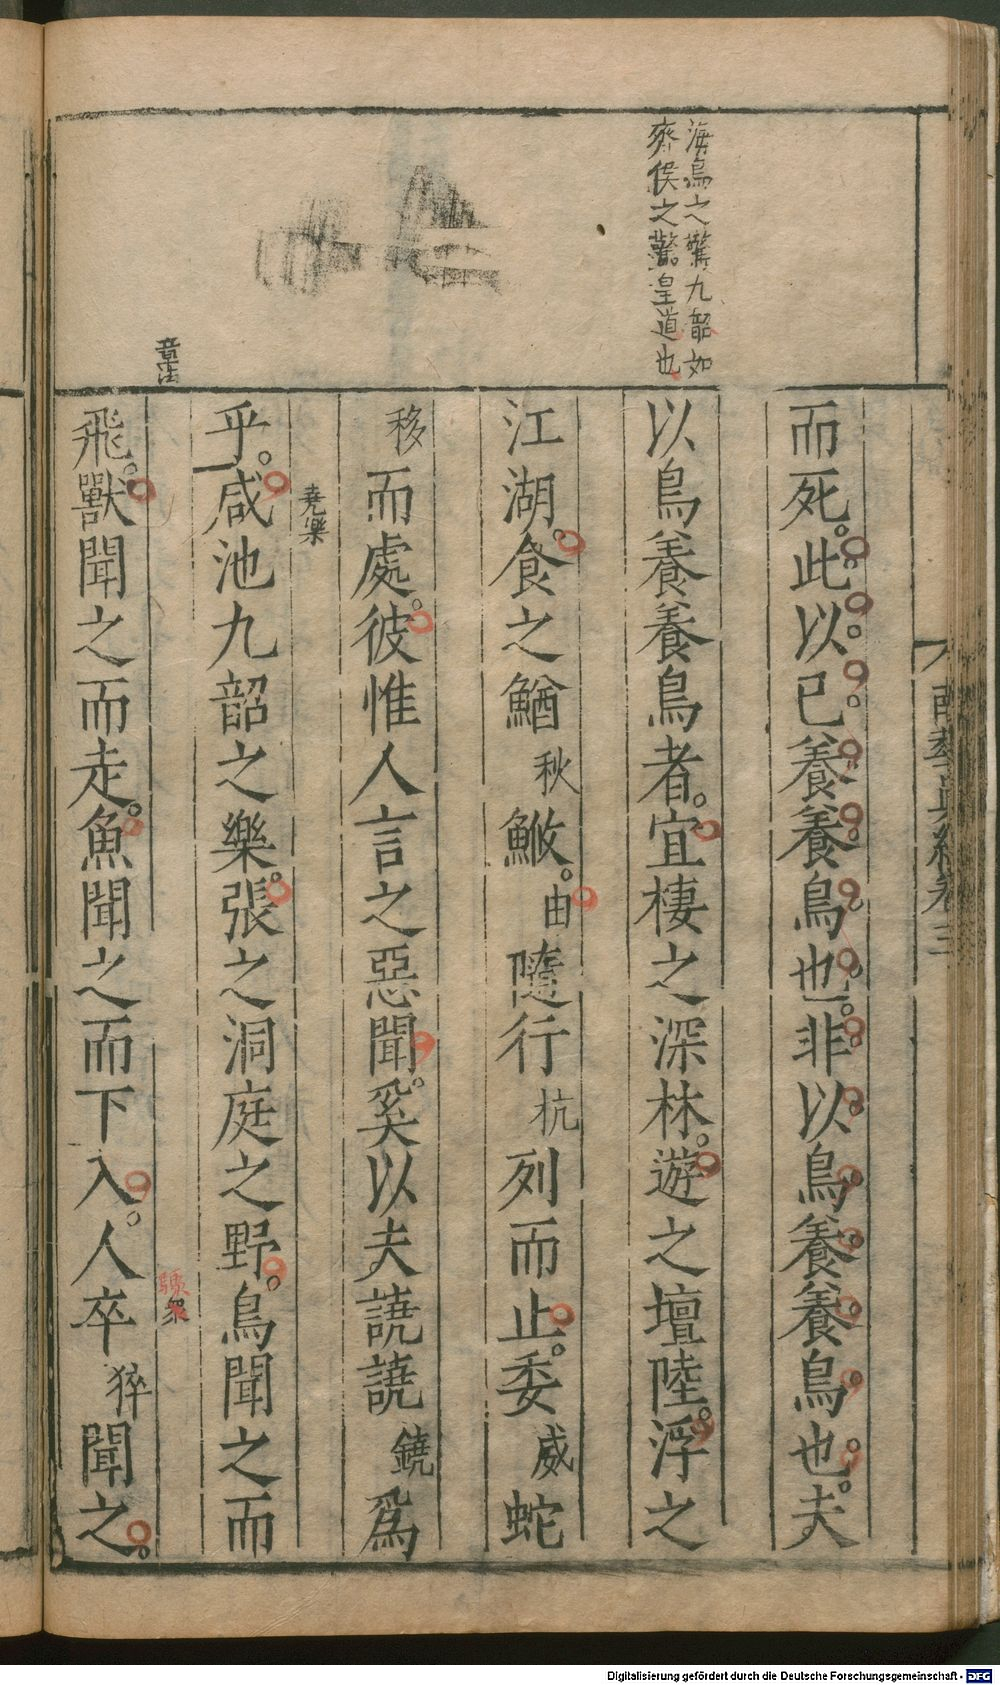 海鳥之驚九韶如
齊侯之驚皇道也
而死。此以己養養鳥也。非以鳥養養鳥也。夫
以鳥養養鳥者。宜棲之深林。遊之壇陸。浮之
江湖。食之鰌秋鮍。由隨行杭列而止。委威蛇
移而處。彼惟人言之惡聞。奚以夫譊譊鐃爲
堯樂
乎。咸池九韶之樂。張之洞庭之野。鳥聞之而
章法
飛。獸聞之而走。魚聞之而下入。人卒猝聞之。
眾
南華眞經卷三
Digitalisierung gefördert durch die Deutsche Forschungsgemeinschaft - DFG